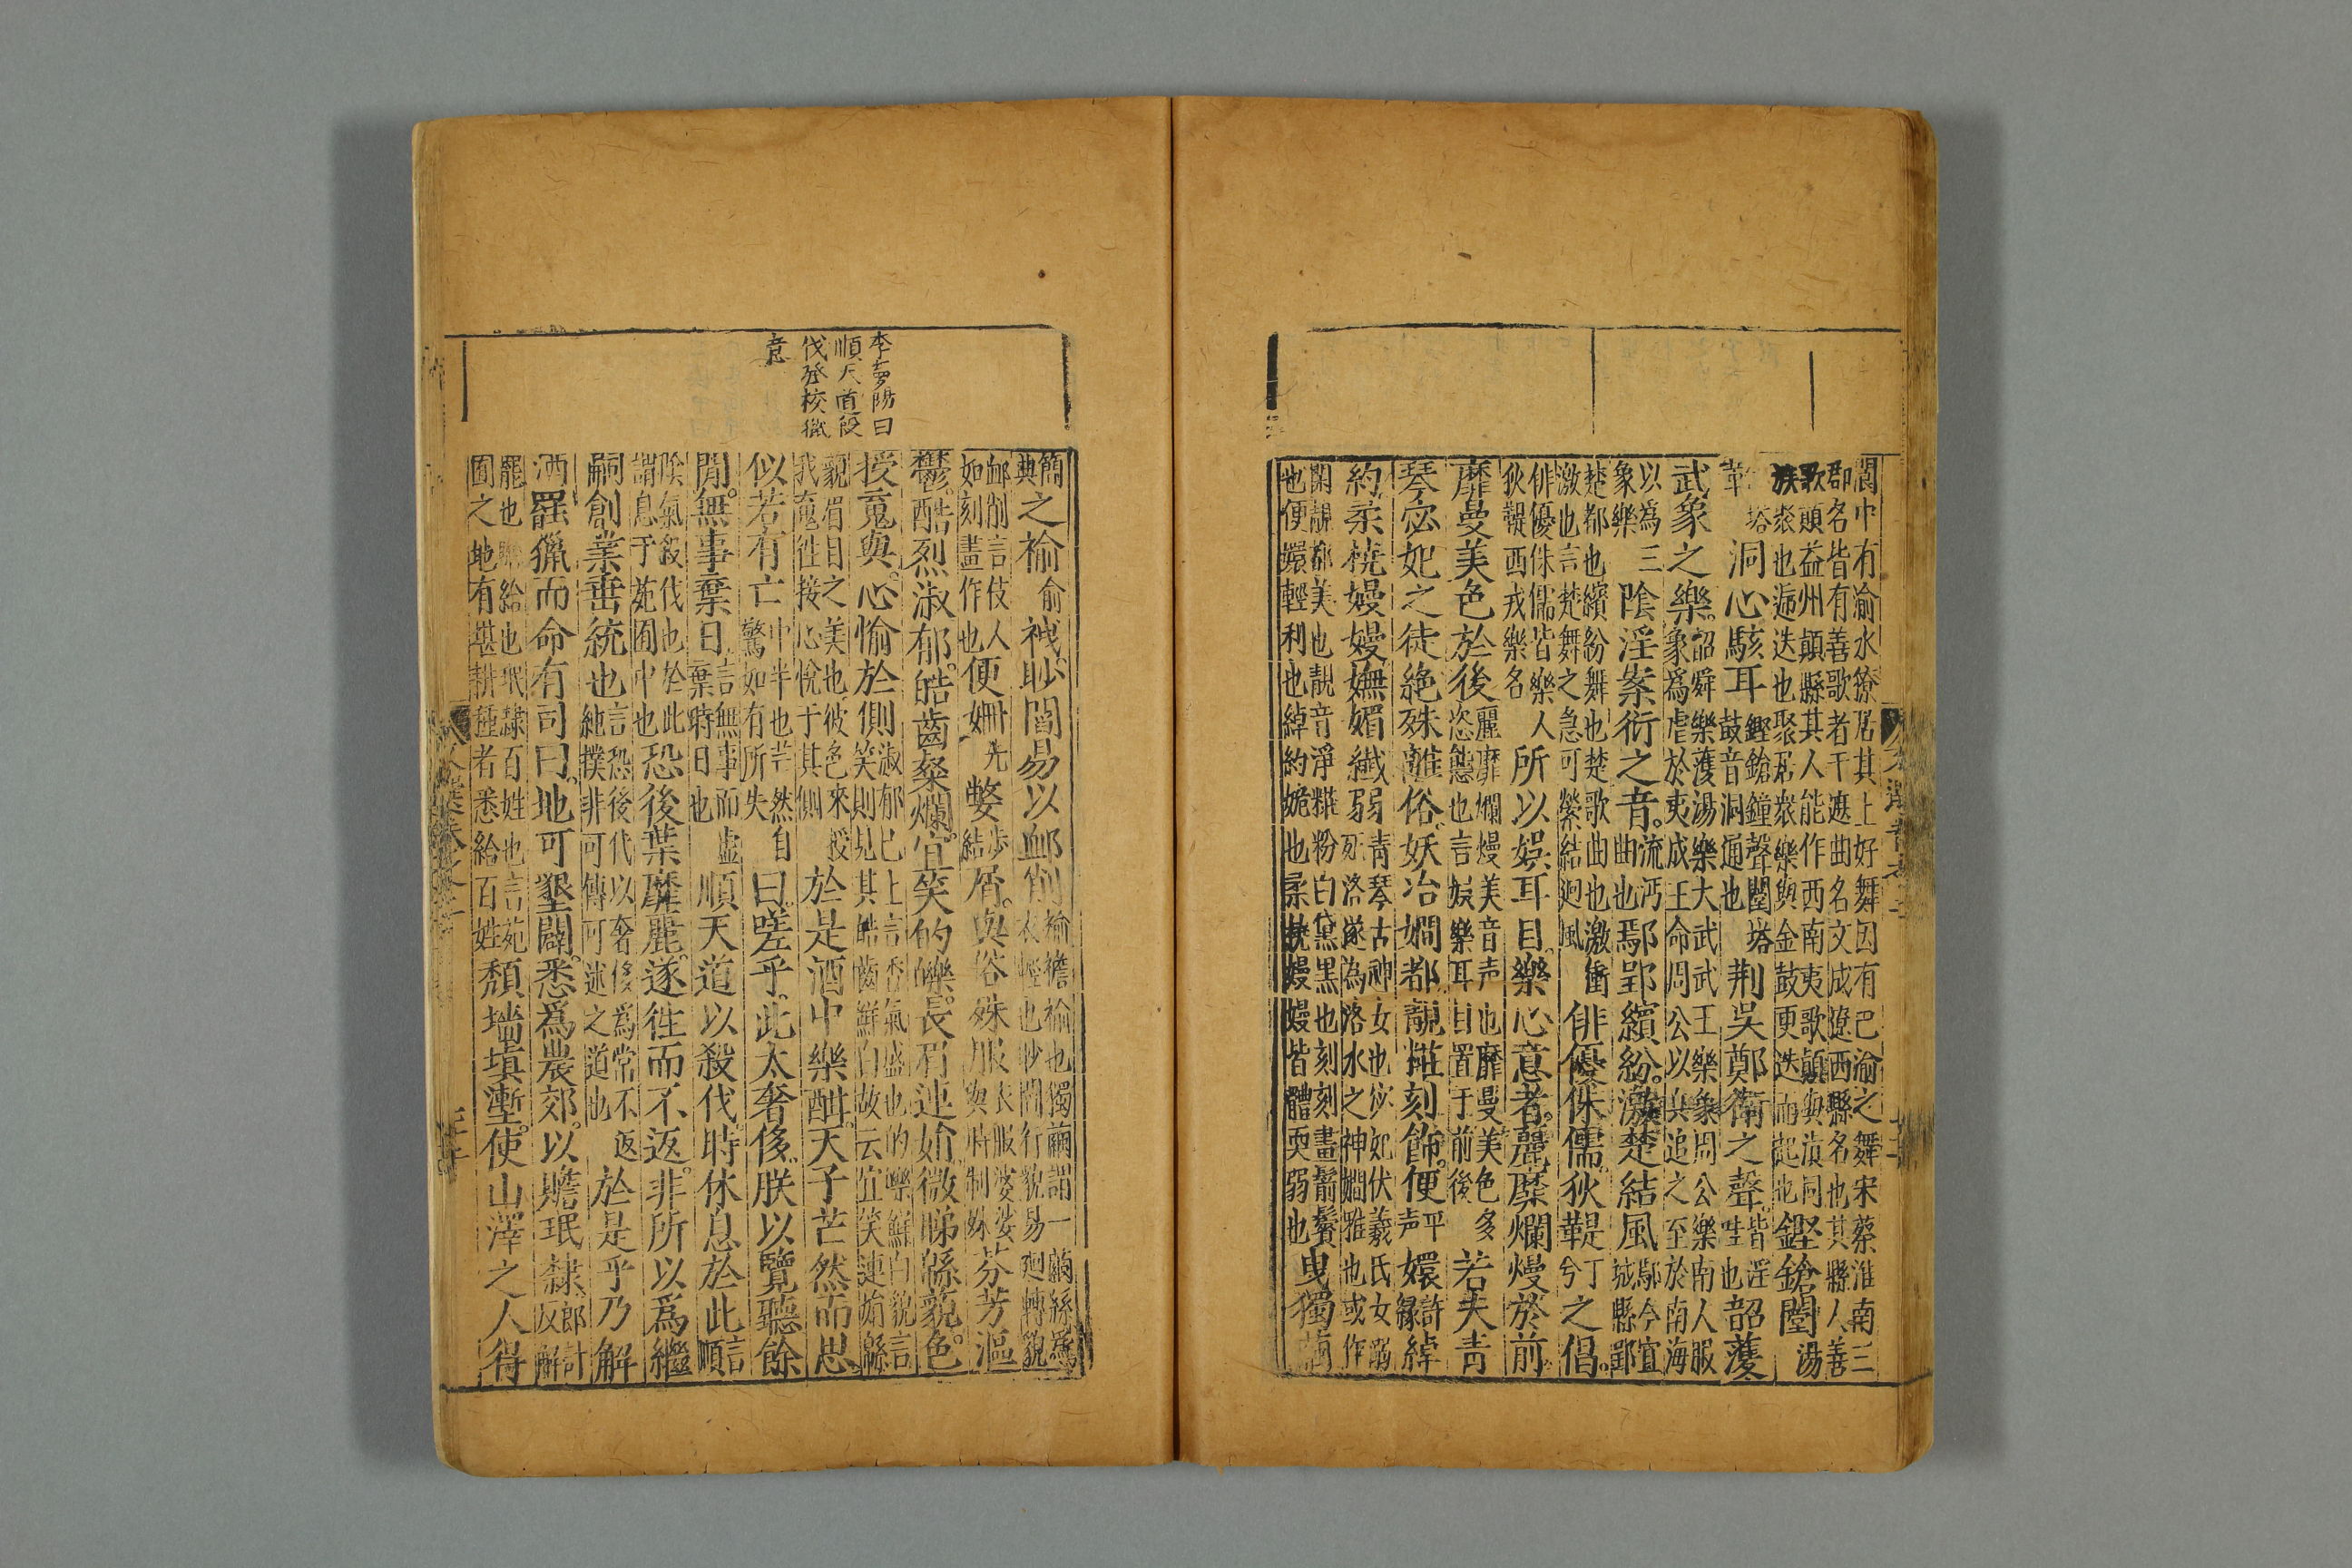 閬中有渝水獠居其上好舞因有巴渝之舞宋蔡淮南三
郡名皆有善歌者干遮曲名文成遼西縣名也其縣人善
歌顛益州顛縣其人能作西南夷歌顛與滇同
族衆也遞迭也聚居衆樂與金鼓更迭而起也鏗鎗闛湯
鞈塔洞心駭耳鏗鎗鐘聲闛塔
鼓音洞通也荆吳鄭衛之聲皆淫
哇也韶濩
武象之樂韶舜樂濩湯樂大武武王樂象周公樂南人服
象爲虐於夷成王命周公以兵追之至於南海
以為三
象樂陰淫案衍之音流沔
曲也鄢郢繽紛激楚結風鄢今宜
城縣郢
楚都也繽紛舞也楚歌曲也激衝
激也言楚舞之急可縈結迴風俳優侏儒狄鞮是丁
兮之倡
俳優侏儒皆樂人
狄鞮西戎樂名所以娛耳目樂心意者麗靡爛熳於前
靡曼美色於後麗靡爛熳美音声也靡曼美色多
恣態也言娛樂耳目置于前後若夫青
琴宓妃之徒絶殊離俗妖冶嫻都靚糚刻飾便平
声嬛許
緣綽
約柔橈嫚嫚嫵媚纎弱青琴古神女也宓妃伏羲氏女溺
死洛遂為洛水之神嫺雅也或作
閑靚都美也靚音淨糚粉白黛黑也刻刻畫鬋鬢也
也便嬛輕利也綽約婉也柔橈嫚嫚皆體耎弱也曳獨繭
簡
典之褕俞
袘眇閻易以卹削褕襜褕也獨繭謂一繭絲爲
衣輕也眇閻行貌易廻轉貌
卹削言伎人
如刻畫作也便姍先
嫳步
結屑與俗殊服衣服婆娑
與時制殊芬芳漚
鬱酷烈淑郁皓齒粲爛宜笑的皪長眉連娟微睇緜藐色
授䰟與心愉於側淑郁已上言香氣盛也的皪鮮白貌言
笑則見其皓齒鮮白故云宜笑連娟緜
藐眉目之美也彼色來授
我䰟往接心悅于其側於是酒中樂酣天子芒然而思
似若有亡中半也芒然自
驚如有所失曰嗟乎此太奢侈朕以覽聽餘
閒無事棄日言無事而虛
棄時日也順天道以殺伐時休息於此言
順
陰氣殺伐也於此
謂息于苑囿中也恐後葉靡麗遂往而不返非所以爲繼
嗣創業垂統也言恐後代以奢侈爲常不返
純撲非可傳可述之道也於是乎乃解
酒罷獵而命有司曰地可墾闢悉爲農郊以贍珉隸郎計
反解
罷也贍給也珉隸百姓也言苑
囿之地有堪耕種者悉給百姓頽墻塡塹使山澤之人得
李夢陽曰
順天道殺
伐發校獵
意